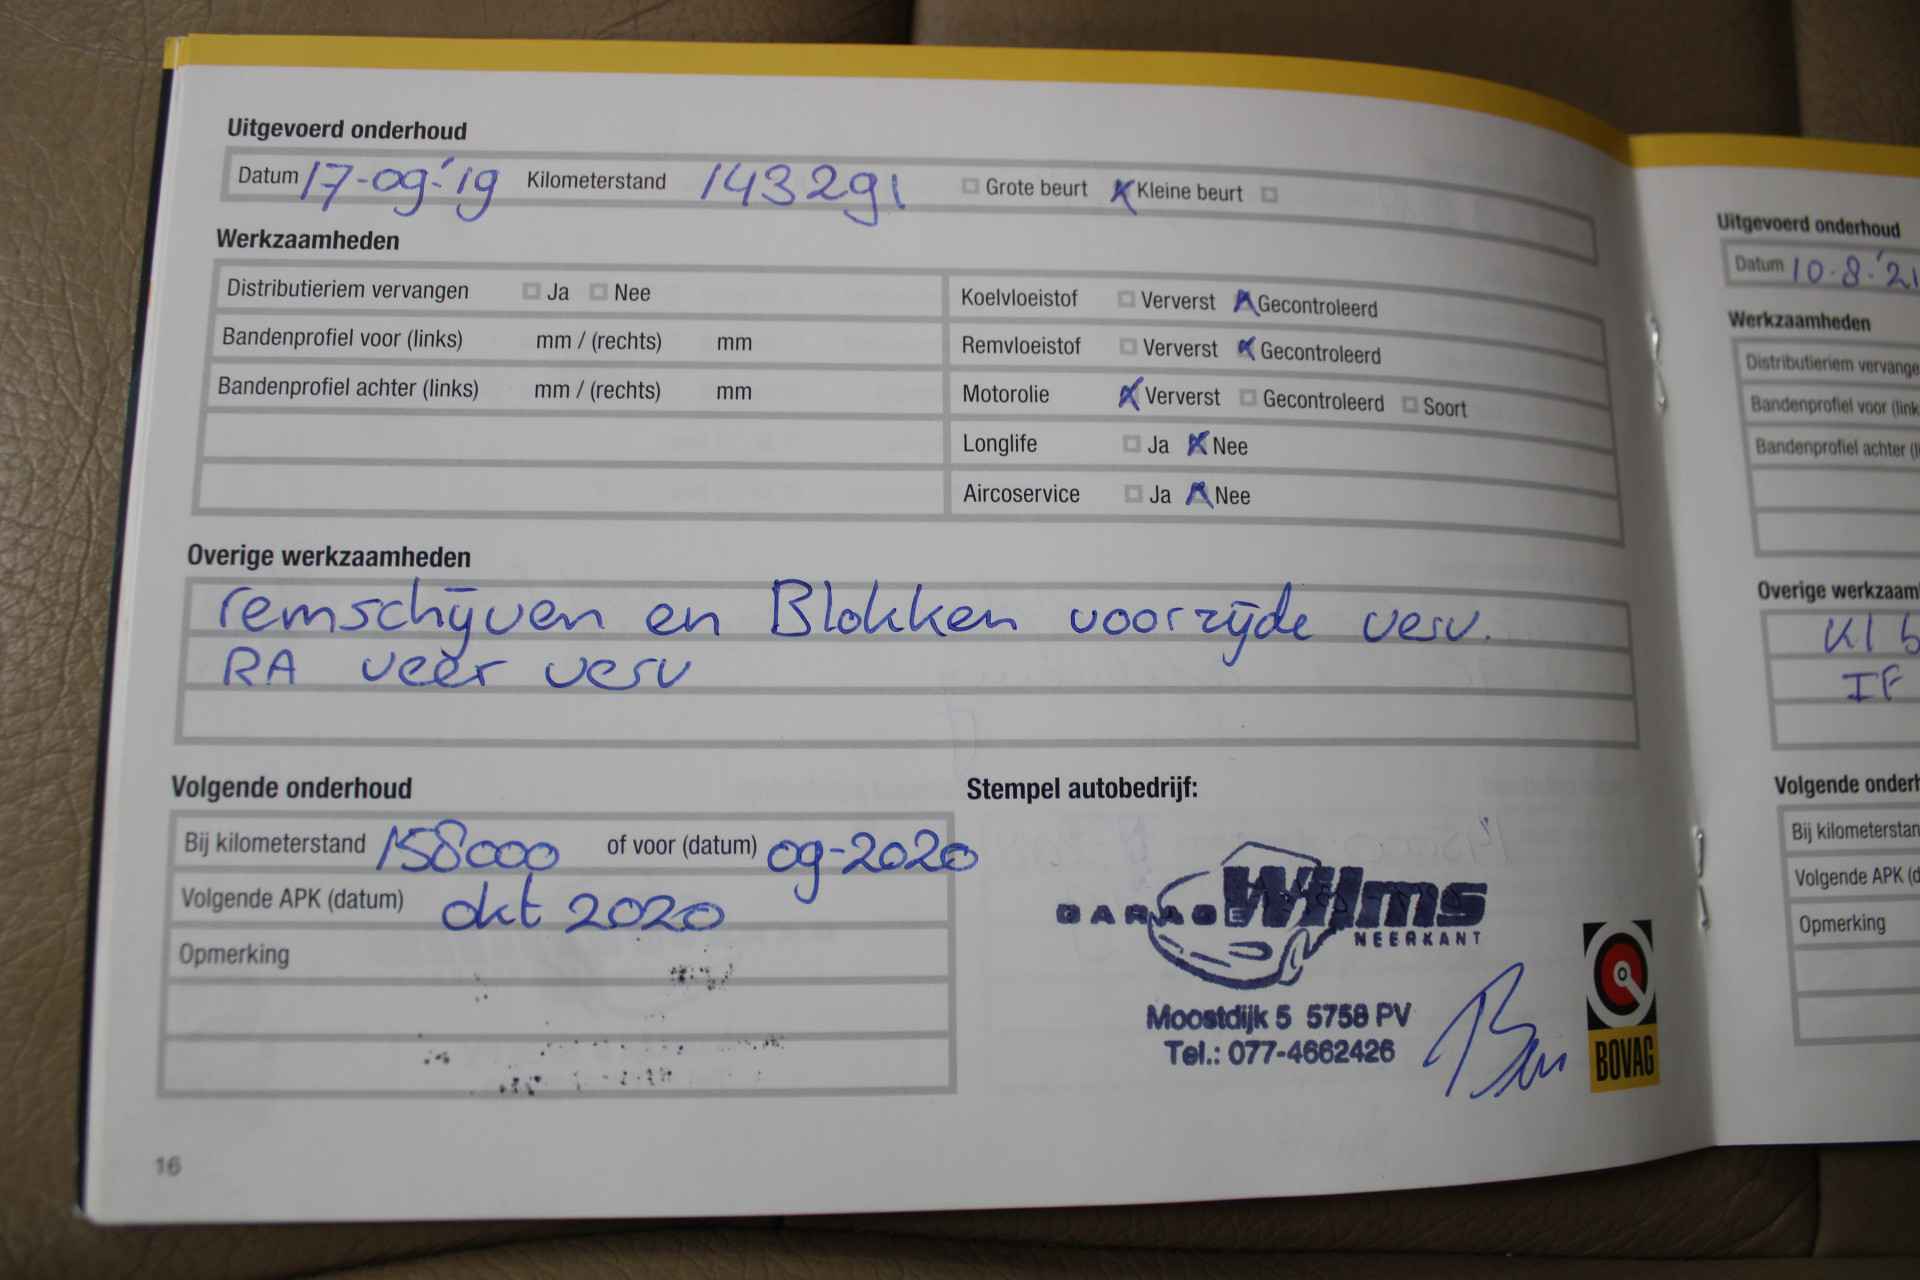 Uitgevoerd onderhoud
Datum 17-09-'19 Kilometerstand 143291 Grote beurt Kleine beurt
Werkzaamheden
Distributieriem vervangen Ja Nee
Bandenprofiel voor (links) mm / (rechts) mm
Bandenprofiel achter (links) mm / (rechts) mm
Koelvloeistof Ververst Gecontroleerd
Remvloeistof Ververst Gecontroleerd
Motorolie Ververst Gecontroleerd Soort
Longlife Ja Nee
Aircoservice Ja Nee
Overige werkzaamheden
remschijven en Blokken voorzijde verv.
RA veer verv
Volgende onderhoud
Bij kilometerstand 158000 of voor (datum) 09-2020
Volgende APK (datum) okt 2020
Opmerking
Stempel autobedrijf:
GARAGE Wilms
NEERKANT
Moostdijk 5 5758 PV
Tel.: 077-4662426
BOVAG
16
Uitgevoerd onderhoud
Datum 10-8-'21
Werkzaamheden
Distributieriem vervange
Bandenprofiel voor (link
Bandenprofiel achter (l
Overige werkzaam
Kl b
IF
Volgende onderh
Bij kilometerstan
Volgende APK (d
Opmerking